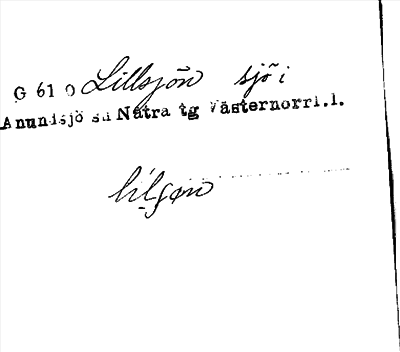 G 61 O Lillsjön sjö i
Anundsjö sn Nätra tg Västernorrl.l.
lilʃøn